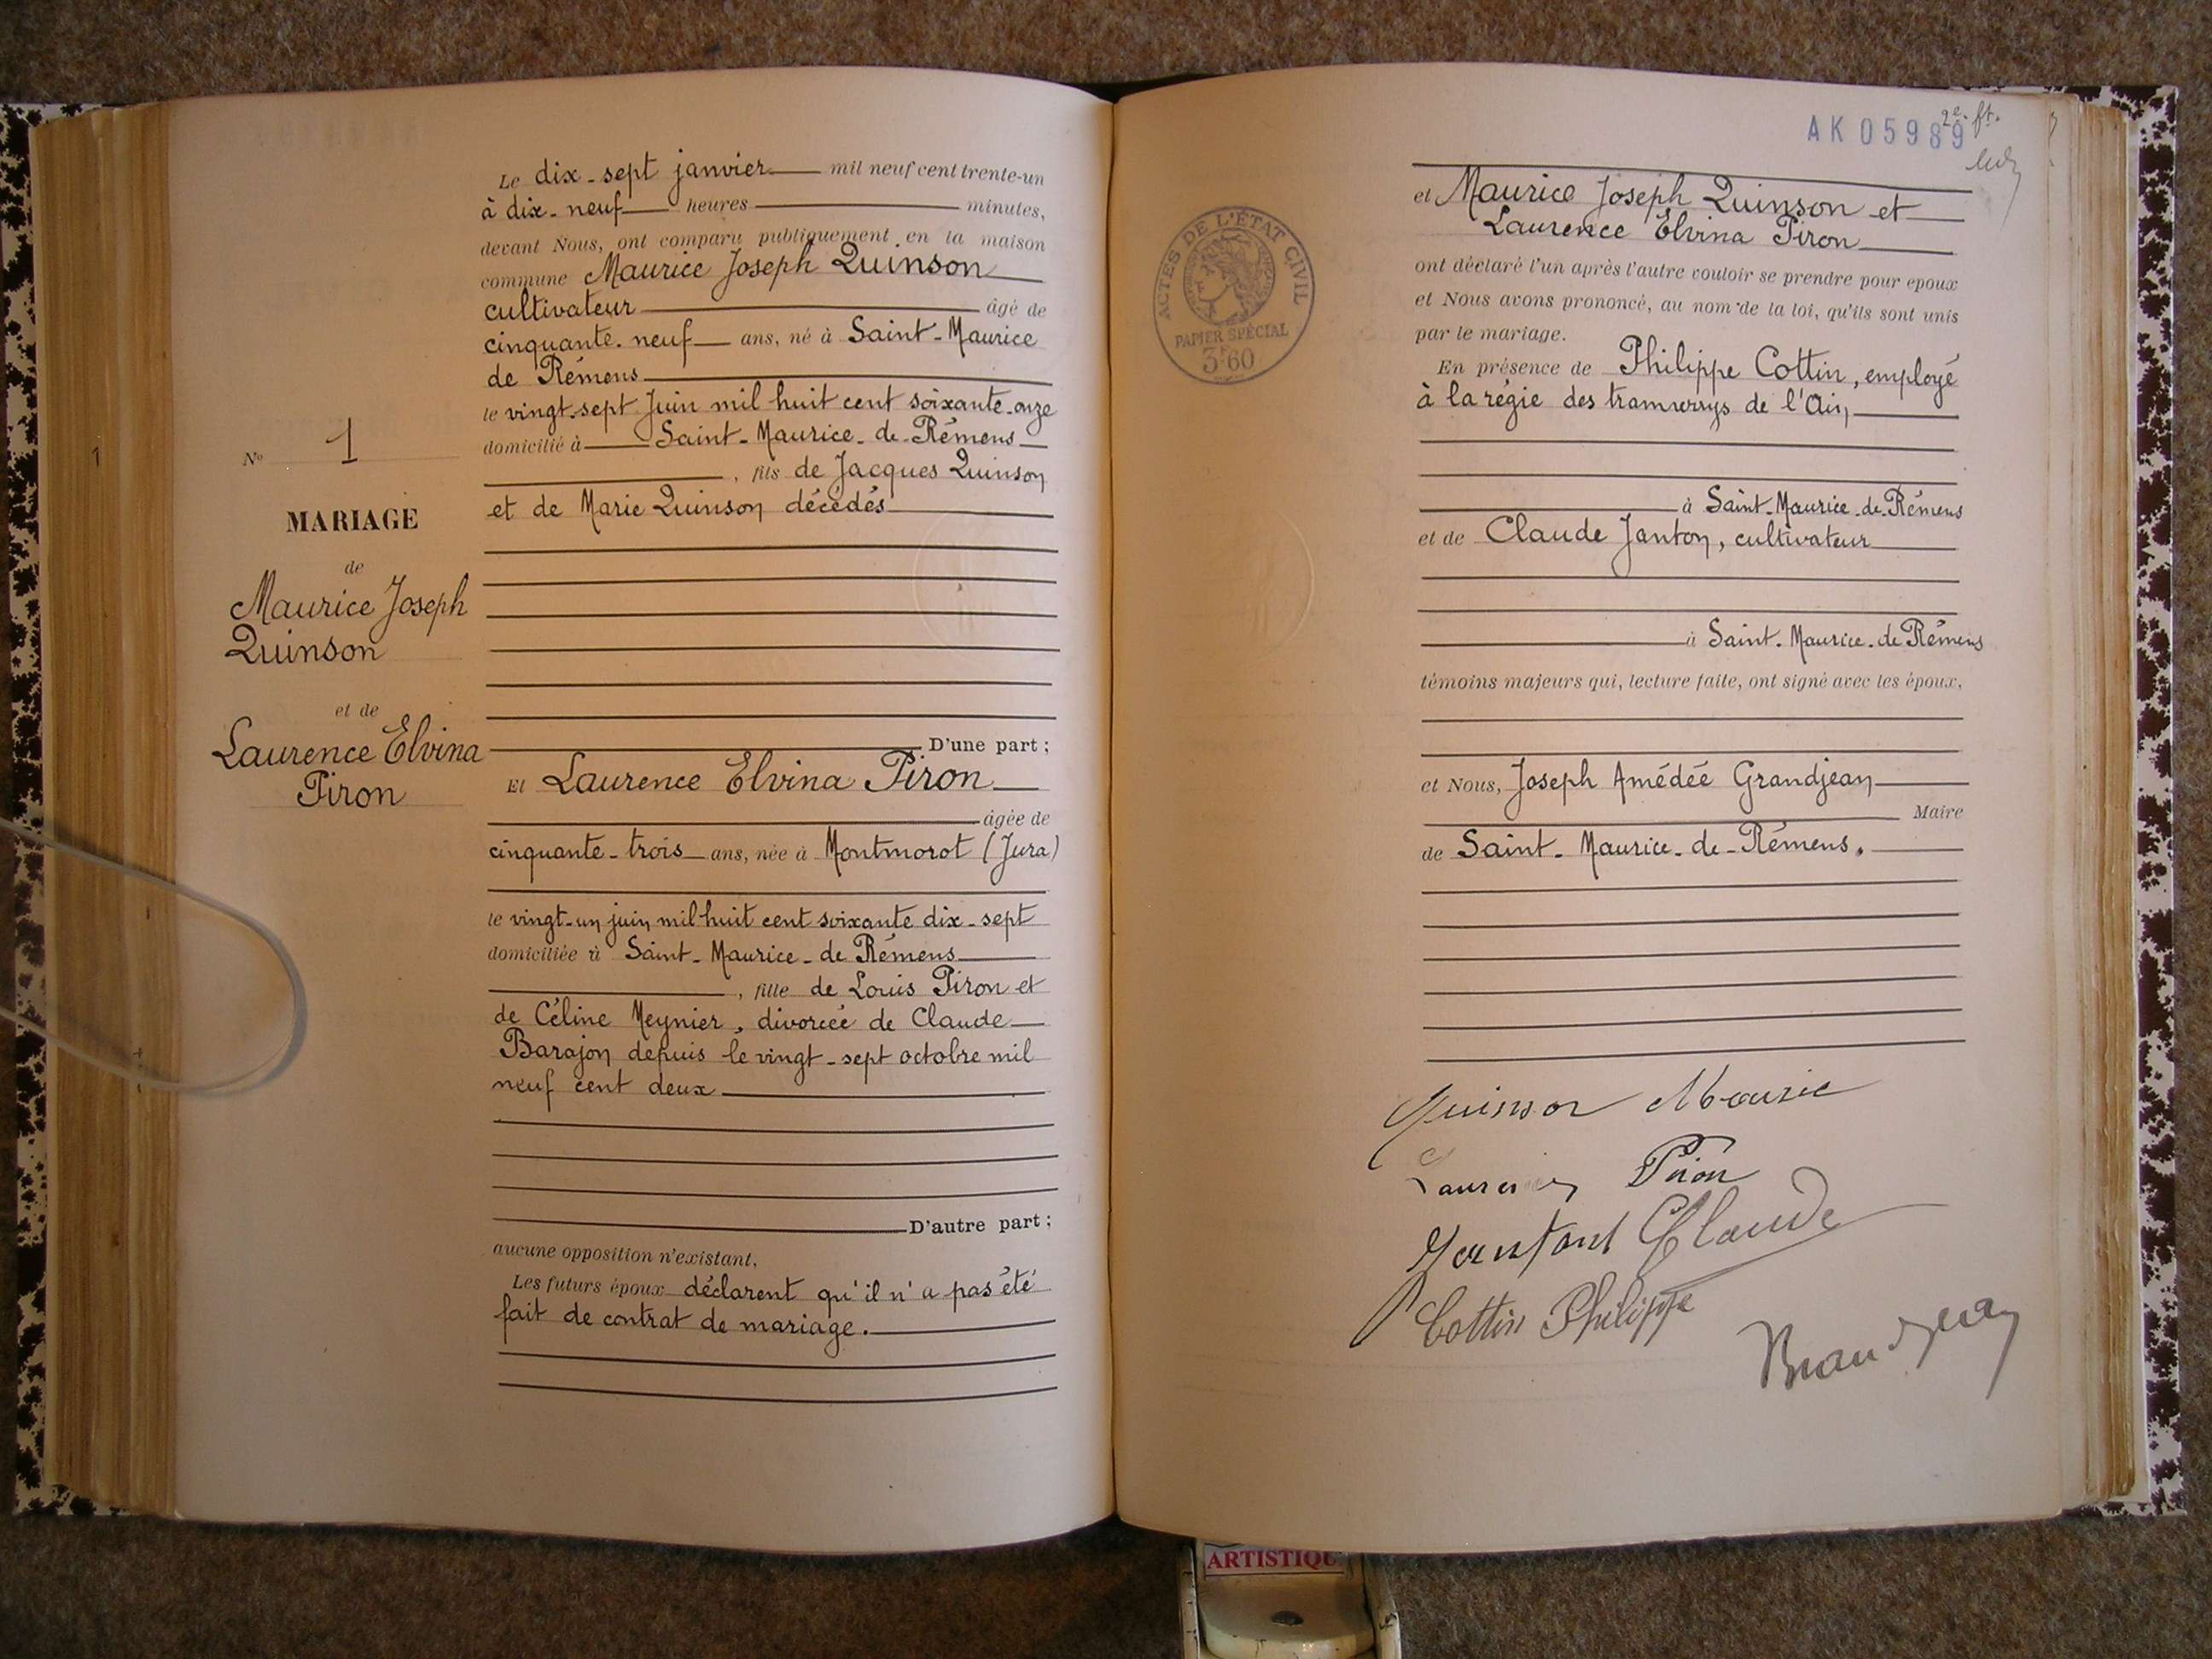 1
N° 1
MARIAGE
de
Maurice Joseph
Quinson
et de
Laurence Elvina
Piron
Le dix-sept janvier mil neuf cent trente-un
à dix-neuf heures minutes,
devant Nous, ont comparu publiquement en la maison
commune Maurice Joseph Quinson
cultivateur âgé de
cinquante-neuf ans, né à Saint-Maurice
de Rémens
le vingt-sept Juin mil huit cent soixante-onze
domicilié à Saint-Maurice-de-Rémens
, fils de Jacques Quinson
et de Marie Quinson décédés
D'une part ;
Et Laurence Elvina Piron
âgée de
cinquante-trois ans, née à Montmorot (Jura)
le vingt-un juin mil huit cent soixante dix-sept
domiciliée à Saint-Maurice-de Rémens
, fille de Louis Piron et
de Céline Meynier, divorcée de Claude
Barajon depuis le vingt-sept octobre mil
neuf cent deux
D'autre part ;
aucune opposition n'existant,
Les futurs époux déclarent qu'il n'a pas été
fait de contrat de mariage.
AK05989
2e ft.
ACTES DE L'ÉTAT CIVIL
PAPIER SPÉCIAL
3F60
et Maurice Joseph Quinson et
Laurence Elvina Piron
ont déclaré l'un après l'autre vouloir se prendre pour époux
et Nous avons prononcé, au nom de la loi, qu'ils sont unis
par le mariage.
En présence de Philippe Cottin, employé
à la régie des tramways de l'Ain,
à Saint-Maurice-de-Rémens
et de Claude Janton, cultivateur
à Saint-Maurice-de Rémens
témoins majeurs qui, lecture faite, ont signé avec les époux,
et Nous, Joseph Amédée Grandjean
Maire
de Saint-Maurice-de-Rémens.
Quinson Maurice
Piron
Janton Claude
Cottin Philippe
Grandjean
ARTISTIQU